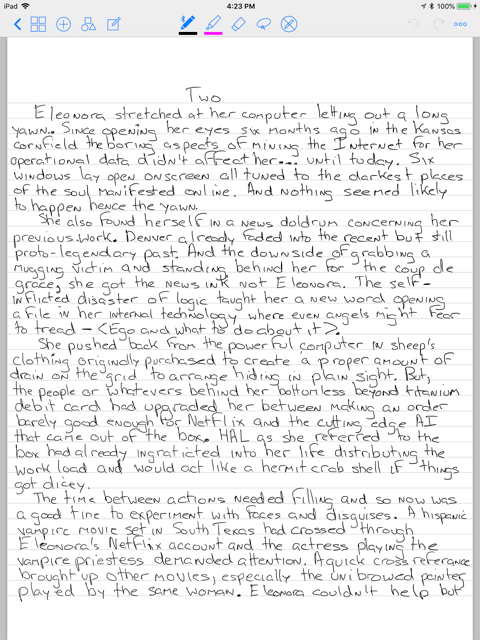 iPad 4:23 PM 100%
Two
Eleonora stretched at her computer letting out a long
yawn. Since opening her eyes six months ago in the Kansas
cornfield the boring aspects of mining the Internet for her
operational data didn't affect her... until today. Six
windows lay open onscreen all tuned to the darkest places
of the soul manifested online. And nothing seemed likely
to happen hence the yawn.
She also found herself in a news doldrum concerning her
previous work. Denver already faded into the recent but still
proto-legendary past. And the downside of grabbing a
mugging victim and standing behind her for the coup de
grace, she got the news ink not Eleonora. The self-
inflicted disaster of logic taught her a new word opening
a file in her internal technology where even angels might fear
to tread - <Ego and what to do about it>.
She pushed back from the powerful computer in sheep's
clothing originally purchased to create a proper amount of
drain on the grid to arrange hiding in plain sight. But,
the people or whatevers behind her bottomless beyond titanium
debit card had upgraded her between making an order
barely good enough for Netflix and the cutting edge AI
that came out of the box. HAL as she referred to the
box had already ingraticted into her life distributing the
work load and would act like a hermit crab shell if things
got dicey.
The time between actions needed filling and so now was
a good time to experiment with faces and disguises. A hispanic
vampire movie set in South Texas had crossed through
Eleonora's Netflix account and the actress playing the
vampire priestess demanded attention. A quick cross referance
brought up other movies, especially the unibrowed painter
played by the same woman. Eleonora couldn't help but